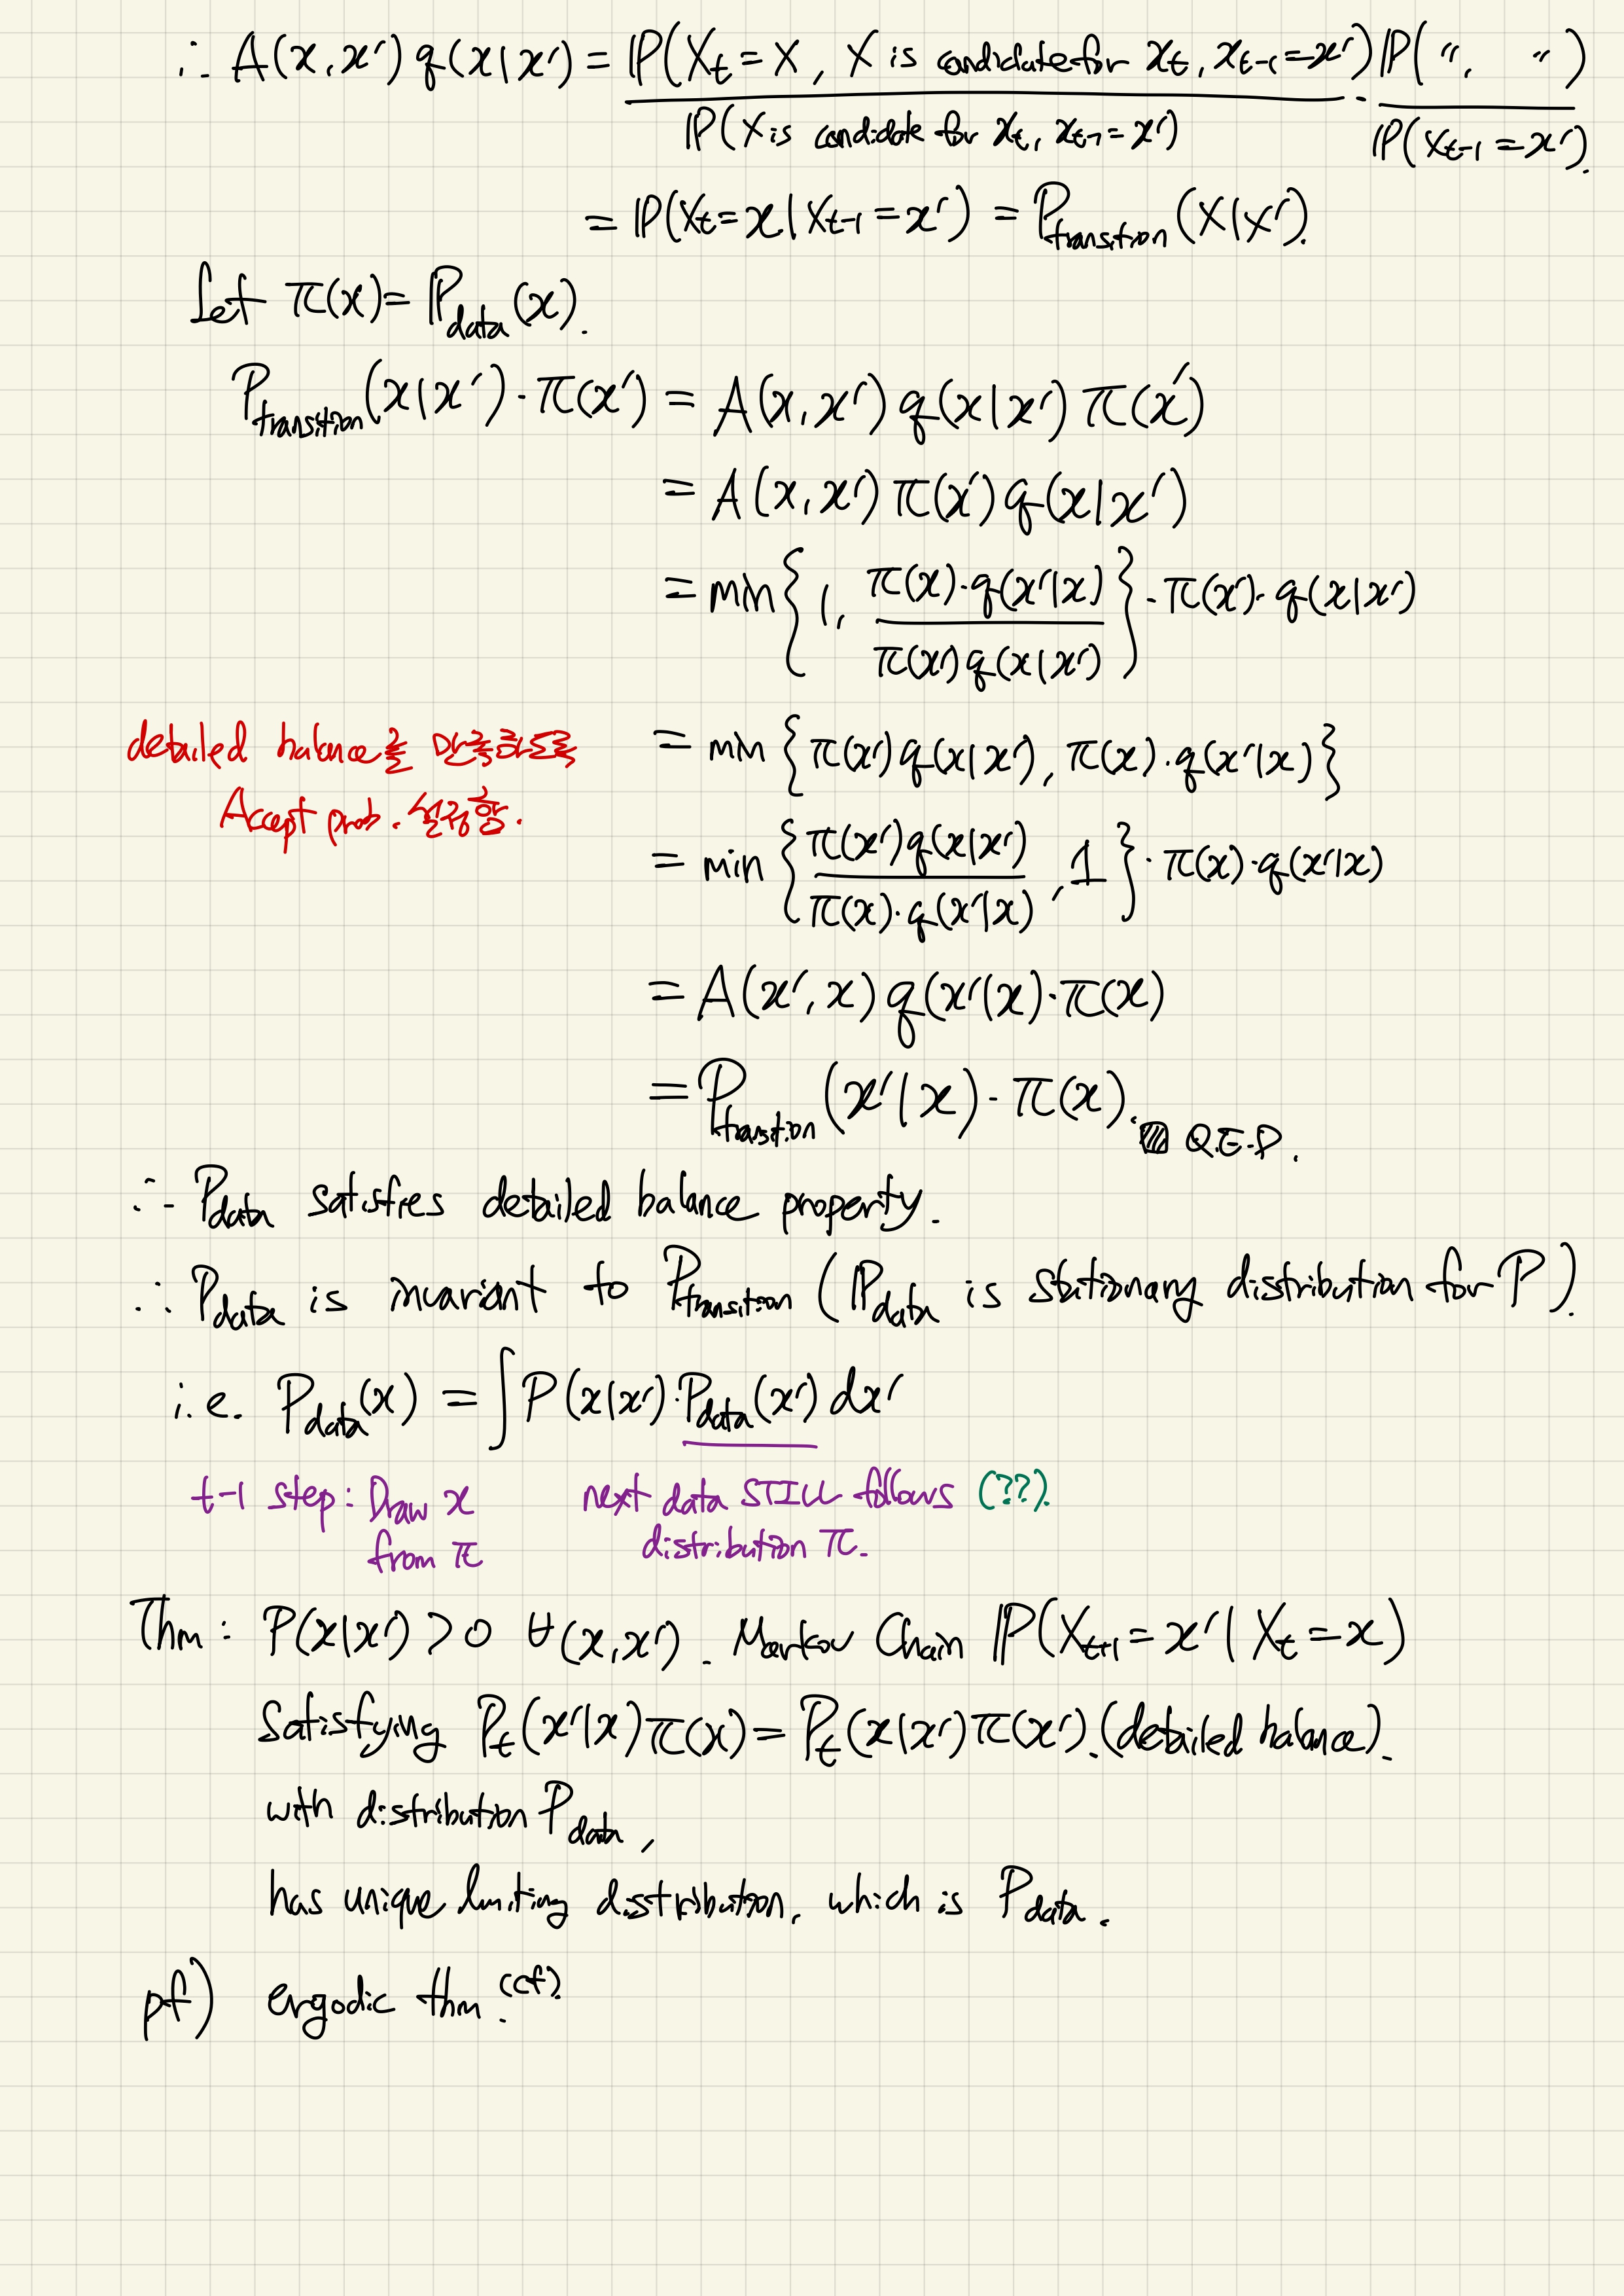 ∴ A(x, x′) q(x|x′) = P(X_t = x, x is candidate for x_t, x_{t-1} = x′) / P(x is candidate for x_t, x_{t-1} = x′) · P(〃, 〃) / P(X_{t-1} = x′).
= P(X_t = x | X_{t-1} = x′) = P_transition (x|x′).
Let π(x) = P_data (x).
P_transition (x|x′) · π(x′) = A(x, x′) q(x|x′) π(x′)
= A(x, x′) π(x′) q(x|x′)
= min { 1, π(x)·q(x′|x) / π(x′) q(x|x′) } · π(x′) · q(x|x′)
detailed balance를 만족하도록 = min { π(x′) q(x|x′), π(x)·q(x′|x) }
Accept prob. 설정함.
= min { π(x′) q(x|x′) / π(x)·q(x′|x), 1 } · π(x)·q(x′|x)
= A(x′, x) q(x′|x)·π(x)
= P_transition (x′|x) · π(x). Q.E.D.
∴ P_data satisfies detailed balance property.
∴ P_data is invariant to P_transition (P_data is stationary distribution for P).
i.e. P_data(x) = ∫ P(x|x′)·P_data(x′) dx′
t-1 step: Draw x next data STILL follows (??).
from π distribution π.
Thm: P(x|x′) > 0 ∀(x, x′). Markov Chain P(X_{t+1} = x′ | X_t = x)
Satisfying P_t(x′|x) π(x) = P_t(x|x′) π(x′). (detailed balance).
with distribution P_data,
has unique limiting distribution, which is P_data.
pf) ergodic thm. (cf)